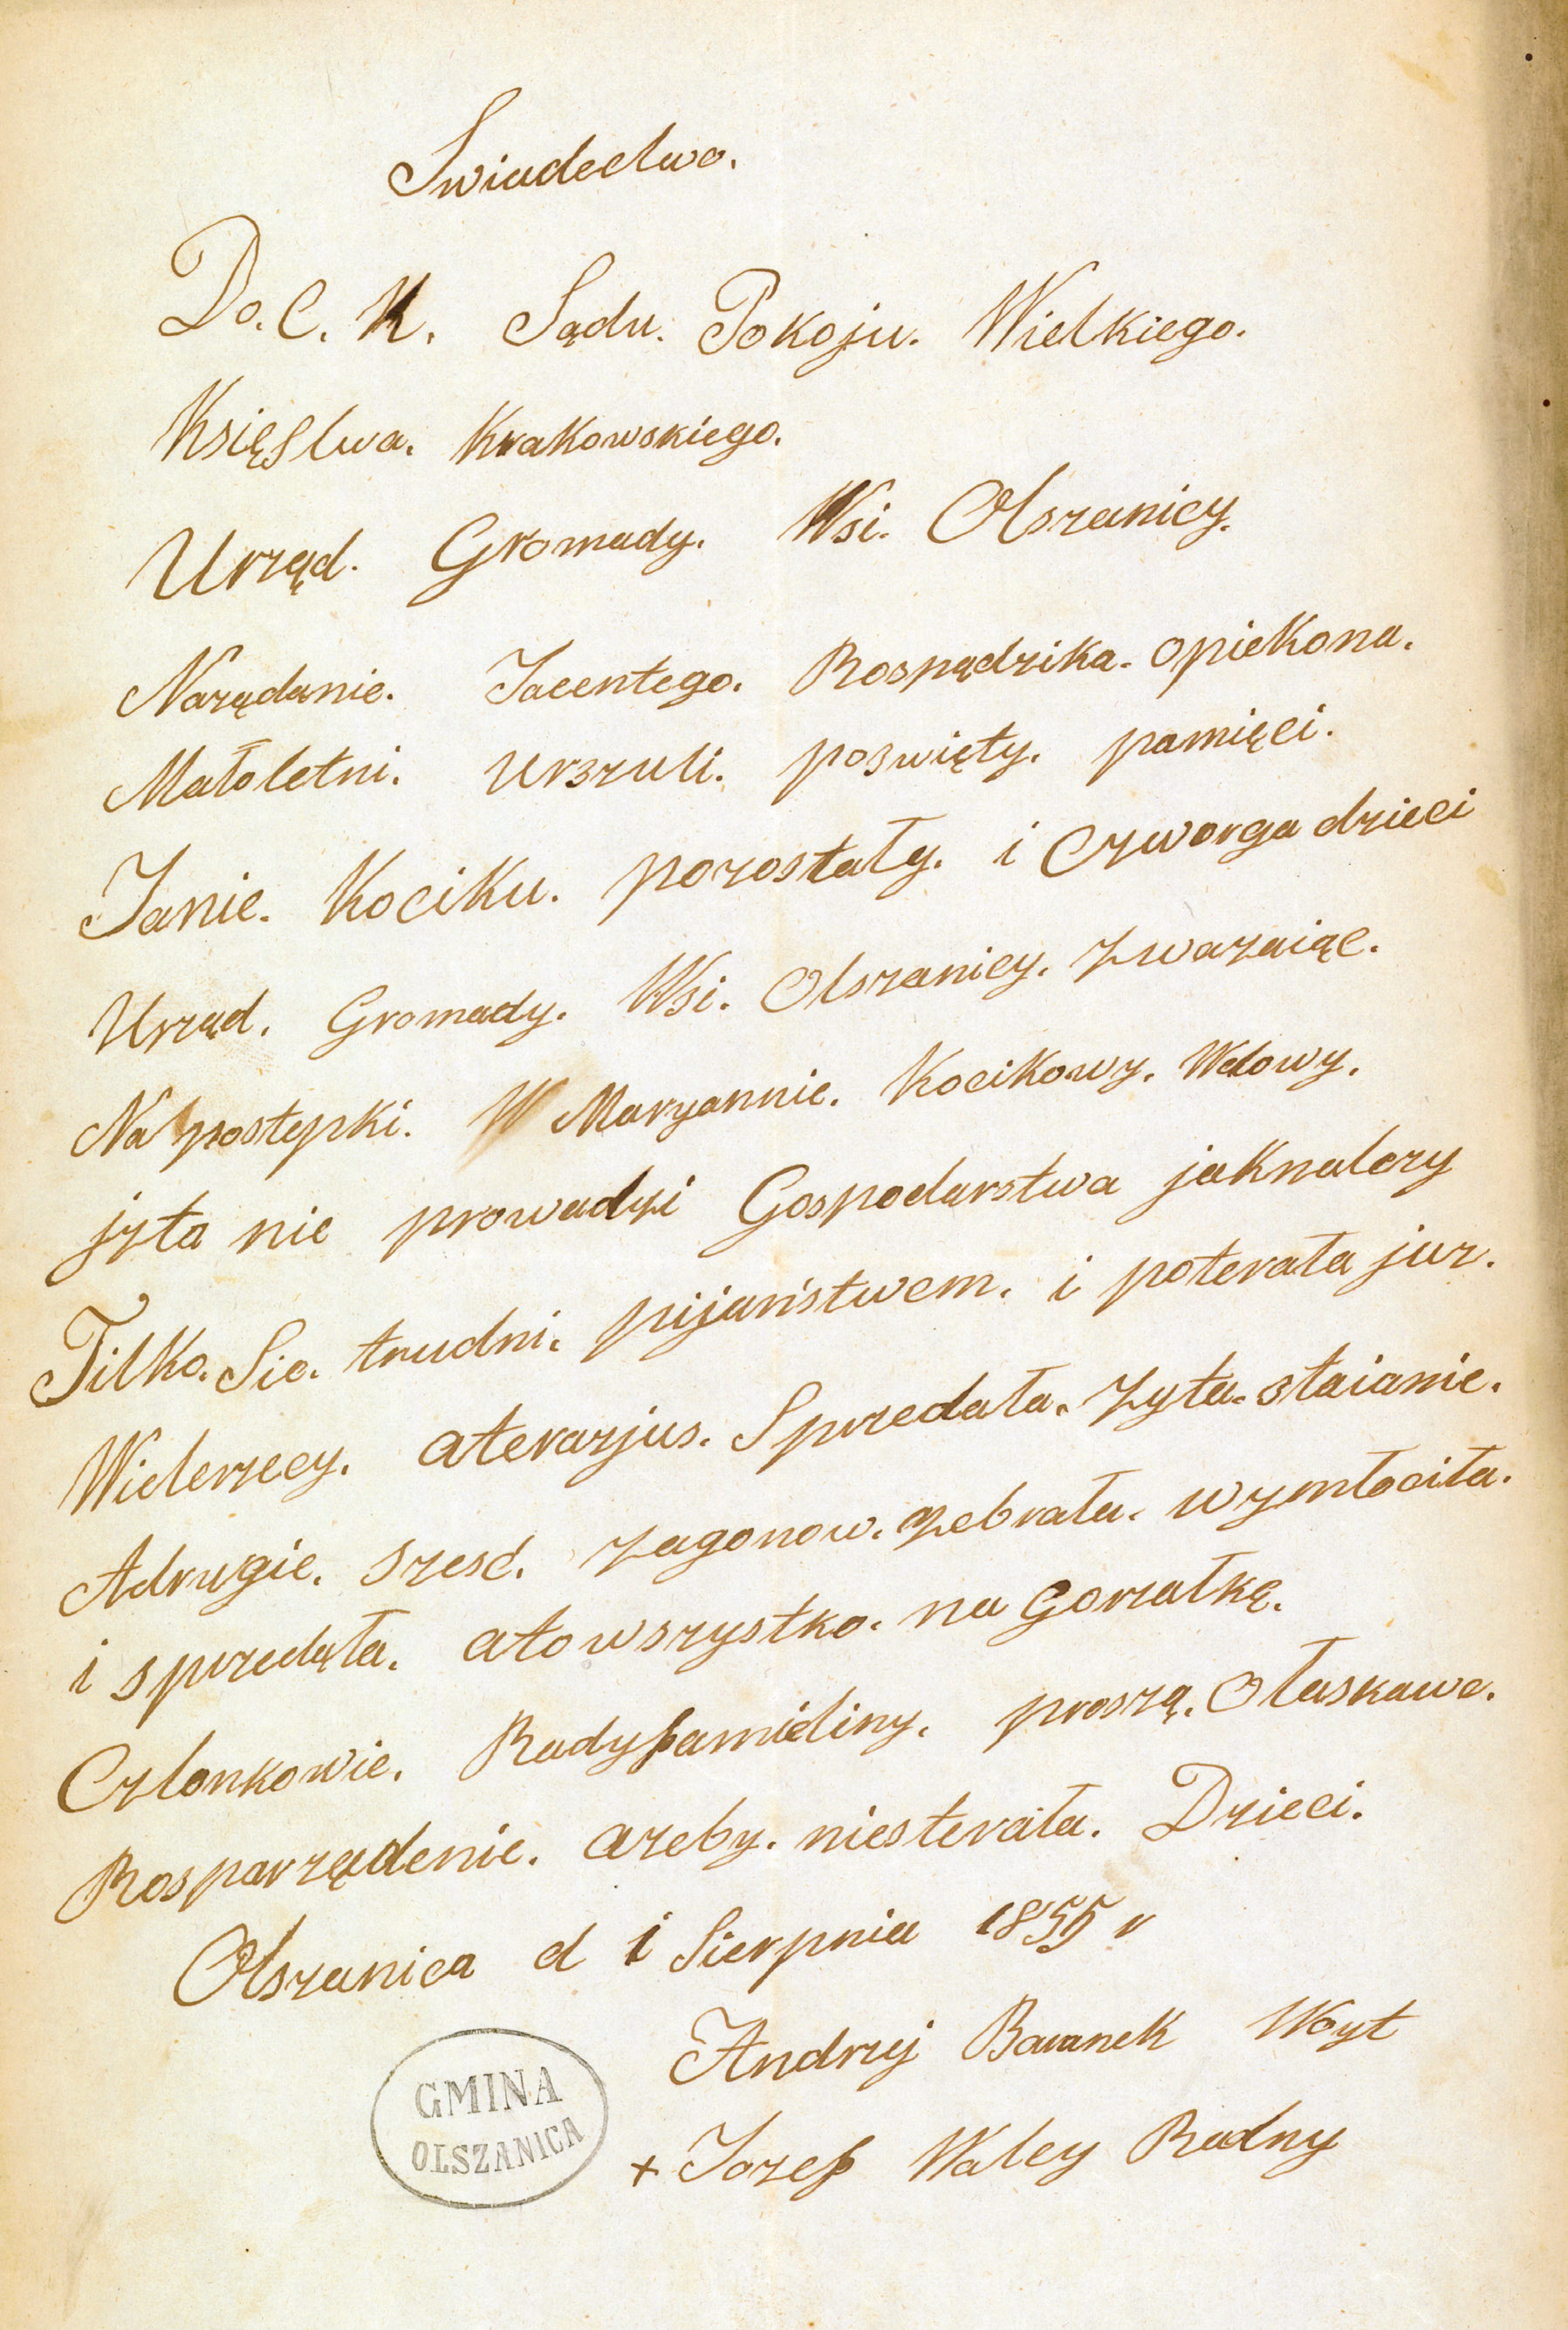 Swiadectwo.
Do. C. K. Sądu. Pokoju. Wielkiego.
Księstwa. Krakowskiego.
Urząd. Gromady. Wsi. Olszanicy.
Narządanie. Jacentego. Rospądzika. opiekona.
Małoletni. Urszuli. poswięty. pamięci.
Janie. Kociku. pozostały. i Czworga dzieci
Urząd. Gromady. Wsi. Olszanicy. zwazaiąc.
Na postępki. W Maryannie. Kocikowy. Wdowy.
jzta nie prowadzi Gospodarstwa jaknalezy
Tilko. Sie. trudni. pijaństwem. i poterała juz.
Wielerzecy. aterazjus. Sprzedała. zyta. staianie.
Adrugie. szesć. zagonow. zebrała. wymłociła.
i sprzedąła. atowszystko. na gorzałkę.
Czlonkowie. Radyfamieliny. proszą. Ołaskawe.
Rosparządenie. azeby. niesterała. Dzieci.
Olszanica d 1 Sierpnia 1855 r
Andrzej Baranek Woyt
+ Jozef Waley Radny
GMINA
OLSZANICA